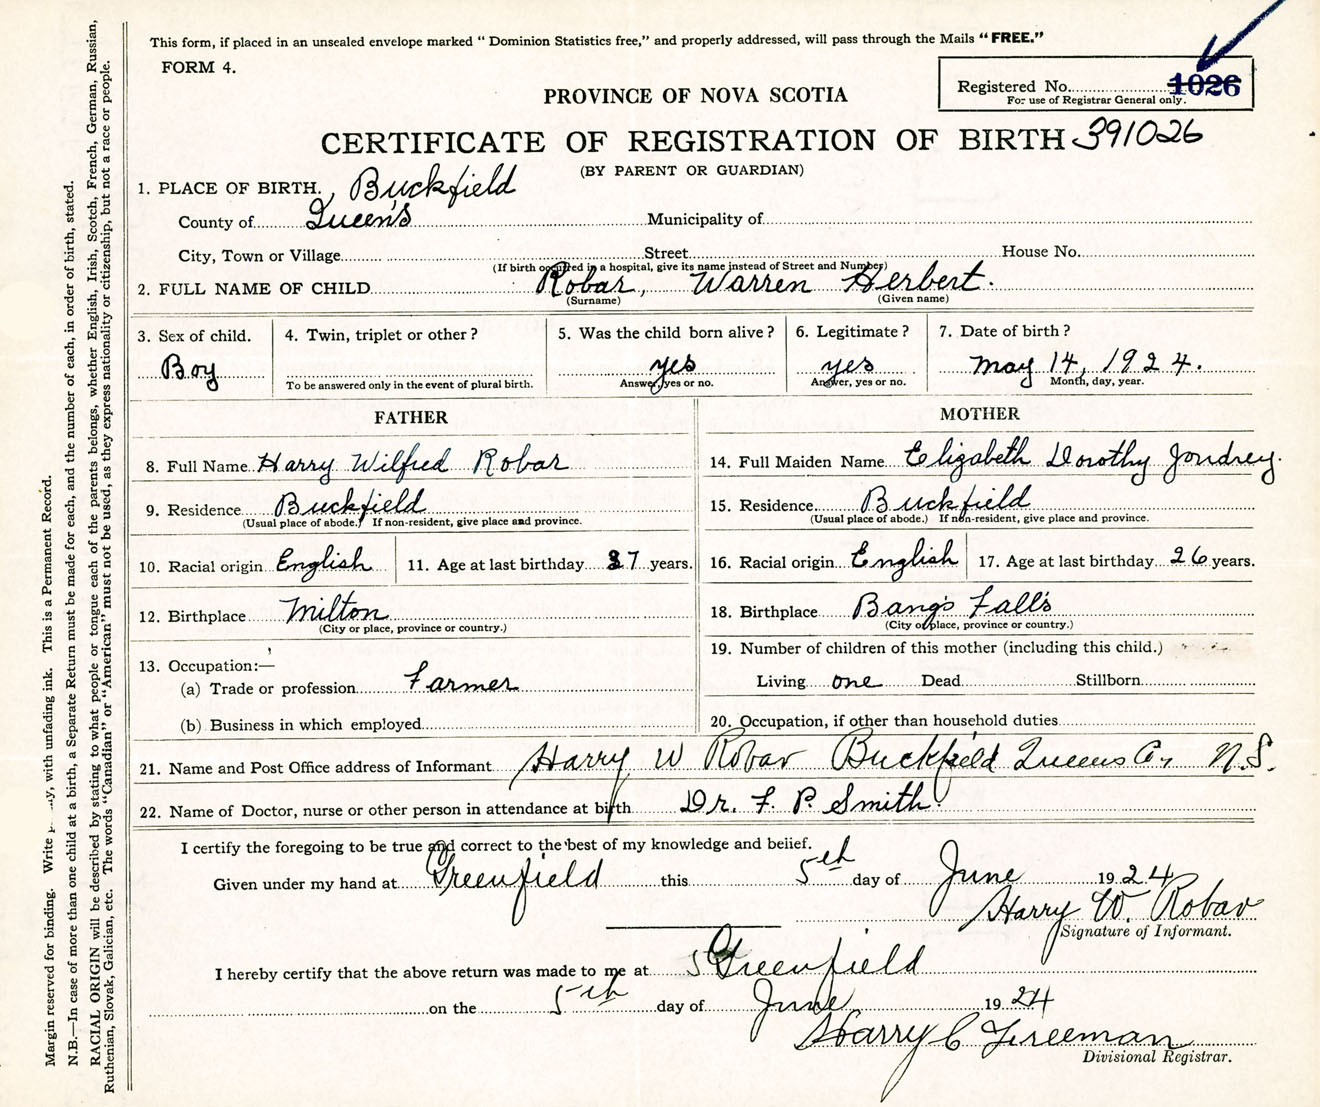 This form, if placed in an unsealed envelope marked “ Dominion Statistics free,” and properly addressed, will pass through the Mails “ FREE.”
FORM 4.
Registered No. 1026
For use of Registrar General only.
PROVINCE OF NOVA SCOTIA
CERTIFICATE OF REGISTRATION OF BIRTH 391026
(BY PARENT OR GUARDIAN)
1. PLACE OF BIRTH. Buckfield
County of Queen's Municipality of
City, Town or Village Street House No.
(If birth occurred in a hospital, give its name instead of Street and Number)
2. FULL NAME OF CHILD Robar, Warren Herbert.
(Surname) (Given name)
3. Sex of child. 4. Twin, triplet or other ? 5. Was the child born alive ? 6. Legitimate ? 7. Date of birth ?
Boy yes yes May 14, 1924.
To be answered only in the event of plural birth. Answer, yes or no. Answer, yes or no. Month, day, year.
FATHER
8. Full Name Harry Wilfred Robar
9. Residence Buckfield
(Usual place of abode.) If non-resident, give place and province.
10. Racial origin English 11. Age at last birthday 37 years.
12. Birthplace Milton
(City or place, province or country.)
13. Occupation:—
(a) Trade or profession Farmer
(b) Business in which employed
MOTHER
14. Full Maiden Name Elizabeth Dorothy Joudrey.
15. Residence Buckfield
(Usual place of abode.) If non-resident, give place and province.
16. Racial origin English 17. Age at last birthday 26 years.
18. Birthplace Bang's Fall's
(City or place, province or country.)
19. Number of children of this mother (including this child.)
Living one Dead Stillborn
20. Occupation, if other than household duties
21. Name and Post Office address of Informant Harry W Robar Buckfield Queens Co, N.S.
22. Name of Doctor, nurse or other person in attendance at birth Dr. F. P. Smith.
I certify the foregoing to be true and correct to the best of my knowledge and belief.
Given under my hand at Greenfield this 5th day of June 1924
Harry W. Robar
Signature of Informant.
I hereby certify that the above return was made to me at Greenfield
on the 5th day of June 1924
Harry C Freeman
Divisional Registrar.
Margin reserved for binding. Write with unfading ink. This is a Permanent Record.
N.B.—In case of more than one child at a birth, a Separate Return must be made for each, and the number of each, in order of birth, stated.
RACIAL ORIGIN will be described by stating to what people or tongue each of the parents belongs, whether English, Irish, Scotch, French, German, Russian,
Ruthenian, Slovak, Galician, etc. The words “Canadian” or “American” must not be used, as they express nationality or citizenship, but not a race or people.